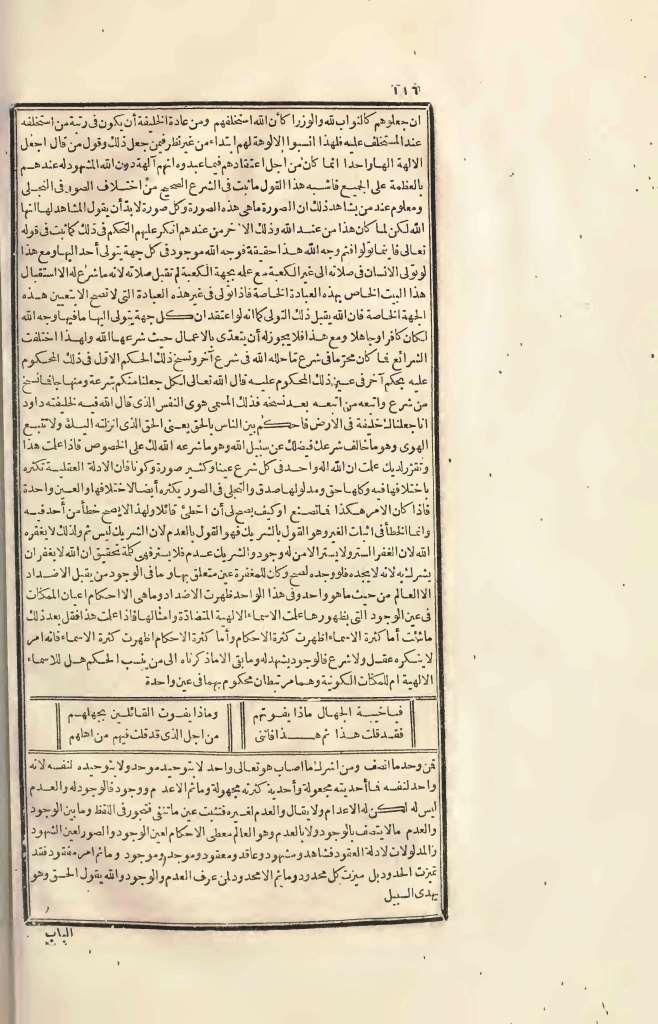 ٤١٦
ان جعلوهم كالنواب لله والوزرا كأن الله استخلفهم ومن عادة الخليفة أن يكون فى رتبة من استخلفه
عند المستخلف عليه فلهذا انسبوا الالوهة لهم ابتداء من غير نظر فيمن جعل ذلك وقول من قال اجعل
الالهة الها واحدا انما كان من اجل اعتقادهم فيما عبدوه انهم آلهة دون الله المشهود له عندهم
بالعظمة على الجميع فاشبه هذا القول ما ثبت فى الشرع الصحيح من اختلاف الصور فى التجلى
ومعلوم عند من يشاهد ذلك ان الصورة ما هى هذه الصورة وكل صورة لا بد أن يقول المشاهد لها انها
الله لكن لما كان هذا من عند الله وذلك الاخر من عندهم انكر عليهم التحكم فى ذلك كما ثبت فى قوله
تعالى فاينما تولوا فثم وجه الله هذا حقيقة فوجه الله موجود فى كل جهة يتولى أحد اليها ومع هذا
لو تولى الانسان فى صلاته الى غير الكعبة مع علمه بجهة الكعبة لم تقبل صلاته لانه ما شرع له الا استقبال
هذا البيت الخاص بهذه العبادة الخاصة فاذا تولى فى غير هذه العبادة التى لا تصح الا بتعيين هذه
الجهة الخاصة فان الله يقبل ذلك التولى كما انه لو اعتقد ان كل جهة يتولى اليها ما فيها وجه الله
لكان كافرا وجاهلا ومع هذا فلا يجوز له أن يتعدى بالاعمال حيث شرعها الله ولهذا اختلفت
الشرائع فما كان محرما فى شرع ما حلله الله فى شرع آخر ونسخ ذلك الحكم الاول فى ذلك المحكوم
عليه بحكم آخر فى عين ذلك المحكوم عليه قال الله تعالى لكل جعلنا منكم شرعة ومنهاجا فما نسخ
من شرع واتبعه من اتبعه بعد نسخه فذلك المسمى هوى النفس الذى قال الله فيه لخليفته داود
انا جعلناك خليفة فى الارض فاحكم بين الناس بالحق يعنى الحق الذى انزلته اليك ولا تتبع
الهوى وهو ما خالف شرعك فيضلك عن سبيل الله وهو ما شرعه الله لك على الخصوص فاذا علمت هذا
وتقرر لديك علمت ان الله اله واحد فى كل شرع عينا وكثير صورة وكونا فان الادلة العقلية تكثره
باختلافها فيه وكلها حق ومدلولها صدق والتجلى فى الصور يكثره أيضا لاختلافها والعين واحدة
فاذا كان الامر هكذا فما تصنع او كيف يصح لى أن اخطئ قائلا ولهذا لا يصح خطأ من أحد فيه
وانما الخطأ فى اثبات الغير وهو القول بالشريك فهو القول بالعدم لان الشريك ليس ثم ولذلك لا يغفره
الله لان الغفر الستر ولا يستر الا من له وجود والشريك عدم فلا يستر فهى كلمة تحقيق ان الله لا يغفر ان
يشرك به لانه لا يجده فلو وجده لصح وكان للمغفرة عين متعلق بها وما فى الوجود من يقبل الاضداد
الا العالم من حيث ما هو واحد وفى هذا الواحد ظهرت الاضداد وما هى الا احكام اعيان الممكنات
فى عين الوجود التى بظهورها علمت الاسماء الالهية المتضادة وامثالها فاذا علمت هذا فقل بعد ذلك
ما شئت أما كثرة الاسماء اظهرت كثرة الاحكام وأما كثرة الاحكام اظهرت كثرة الاسماء فانه امر
لا ينكره عقل ولا شرع فالوجود يشهد له وما بقى الا ماذكرناه الى من ينسب الحكم هل للاسماء
الالهية ام للممكنات الكونية وهما مرتبطان محكوم بهما فى عين واحدة
فياخيبة الجهال ماذا يفوتهم وماذا يفوت القائلين بجهلهم
فقد قلت هذا ثم هذا فاننى من اجل الذى قد قلت فيهم من اهلهم
فمن وحد ما انصف ومن اشرك ما اصاب هو تعالى واحد لا بتوحيد موحد ولا بتوحيده لنفسه لانه
واحد لنفسه فما أحديته مجعولة وأحدية كثرته مجهولة وما ثم الاعدم ووجود فالوجود له والعدم
ليس له لكن له الاعدام ولا يقال والعدم لغيره فتثبت عين ما تنفى فتجوز فى اللفظ وما بين الوجود
والعدم مالا يتصف بالوجود ولا بالعدم وهو العالم معطى الاحكام لعين الوجود والصور لعين الشهود
والمدلولات لادلة العقود فشاهد ومشهود وعاقد ومعقود وموجد وموجود وما ثم امر مفقود فقد
تميزت الحدود بل ميزت كل محدود وما ثم الا محدود لمن عرف العدم والوجود والله يقول الحق وهو
يهدى السبيل
الباب